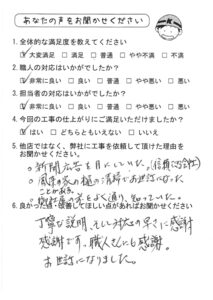 あなたの声をお聞かせください
1. 全体的な満足度を教えてください
☑大変満足 □満足 □普通 □やや不満 □不満
2. 職人の対応はいかがでしたか？
☑非常に良い □良い □普通 □やや悪い □悪い
3. 担当者の対応はいかがでしたか？
☑非常に良い □良い □普通 □やや悪い □悪い
4. 今回の工事の仕上がりにご満足いただけましたか？
☑はい □どちらともいえない □いいえ
5. 他店ではなく、弊社に工事を依頼して頂けた理由を
お聞かせください。
○新聞広告を目にしていた。
○風の家の樋の清掃でお世話になった
ことがある。
をよく通り、知っていた。
6. 良かった点・改善してほしい点があればお聞かせください
丁寧な説明、そして対応の早さに感謝
感謝です。職人さんにも感謝。
お世話になりました。